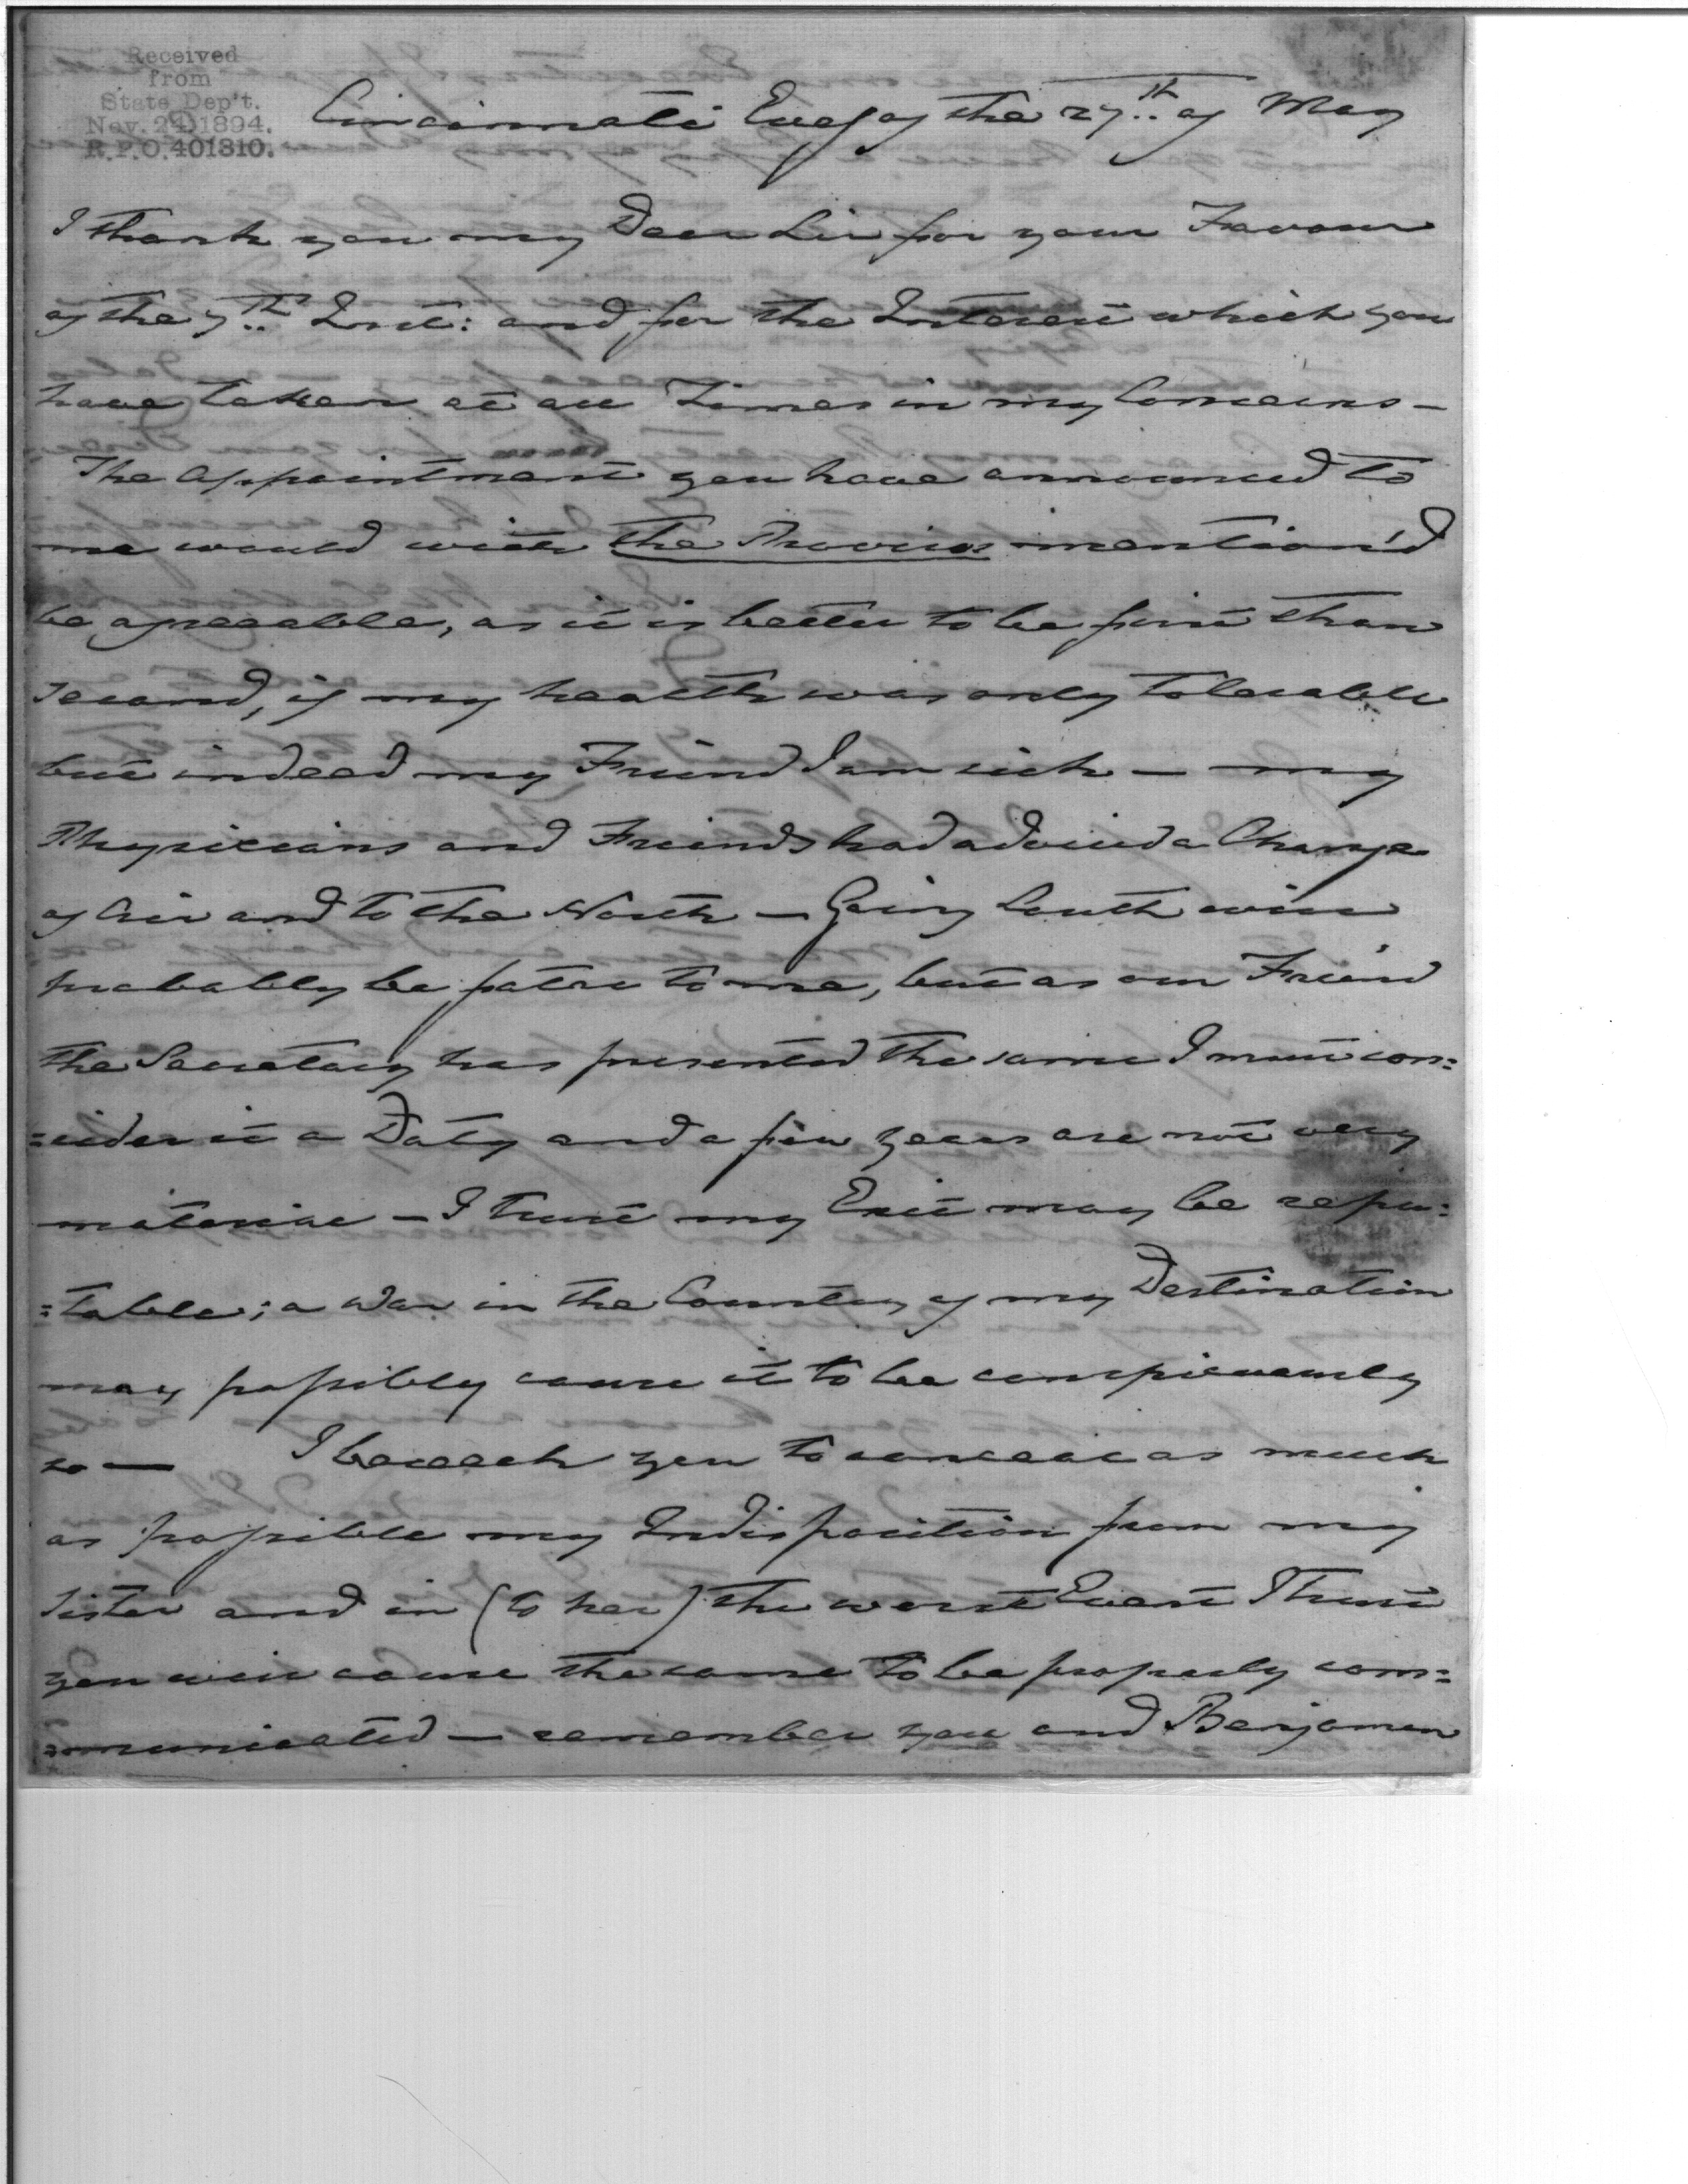 Received
from
State Dep't.
Nov. 24, 1894.
R.P.O. 401310.
Cincinnati Eveg of the 27th of May
I thank you my Dear Sir for your Favour
of the 7th Inst: and for the Interest which you
have taken at all Times in my Concerns –
The appointment you have announced to
me would with the Proviso mention'd
be agreeable, as it is better to be first than
second, if my health was only tolerable
but indeed my Friend I am sick – my
Physicians and Friends had advised a Change
of Air and to the North – Going South will
probably be fatal to me, but as our Friend
the Secretary has presented the same I must con=
=sider it a Duty and a few years are not very
material – I trust my Exit may be repu=
=table; a War in the Country of my Destination
may possibly cause it to be conspicuously
so — I beseech you to conceal as much
as possible my Indisposition from my
Sister and in (to her) the worst Event I trust
you will cause the same to be properly com=
=municated – remember you and Benjamen